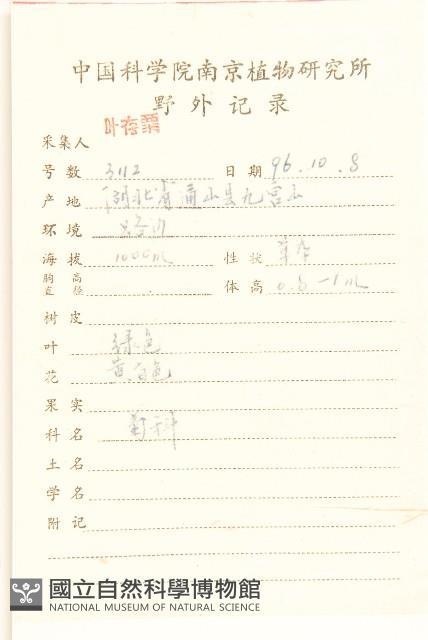 中国科学院南京植物研究所
野外记录
叶存票
采集人
号数 3112 日期 96.10.8
产地 湖北省通山县九宫山
环境
海拔 1000m 性状 草本
胸高直径 体高 0.8-1m
树皮
叶 绿色
花 黄白色
果实
科名 菊科
土名
学名
附记
國立自然科學博物館
NATIONAL MUSEUM OF NATURAL SCIENCE